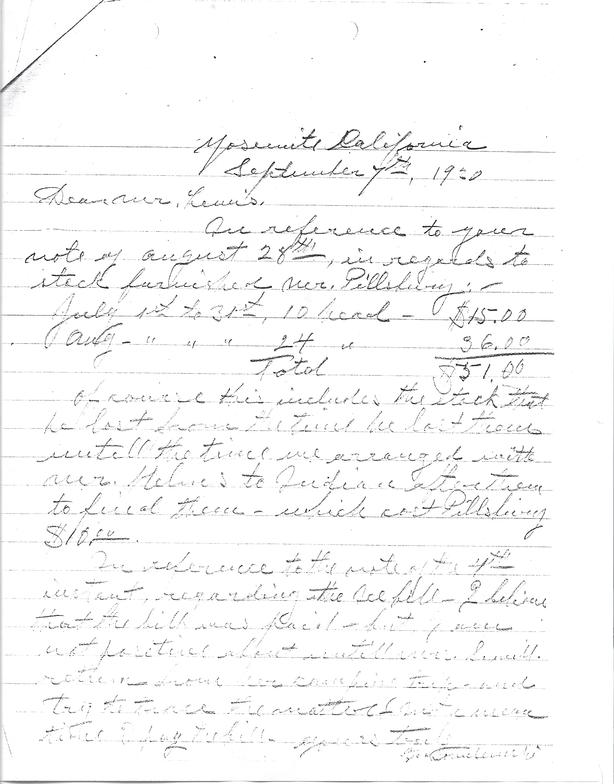 Yosemite California
September 7th, 1920
Dear Mr. Lewis.
In reference to your
note of August 28th, in regards to
stock furnished Mr. Pillsbury: -
July 1st to 31st, 10 head - $15.00
Aug - " " " 24 " 36.00
Total $51.00
Of course this includes the stock that
he lost from the time he lost them
untill the time we arranged with
Mr. to Indian after them
to find them - which cost Pillsbury
$10.00.
In reference to the note of the 4th
instant, regarding the bill - I believe
that the bill was paid - but I am
not positive about untill Mr.
return from camping trip - and
try to trace the matter mean
time I pay the bill. yours truly